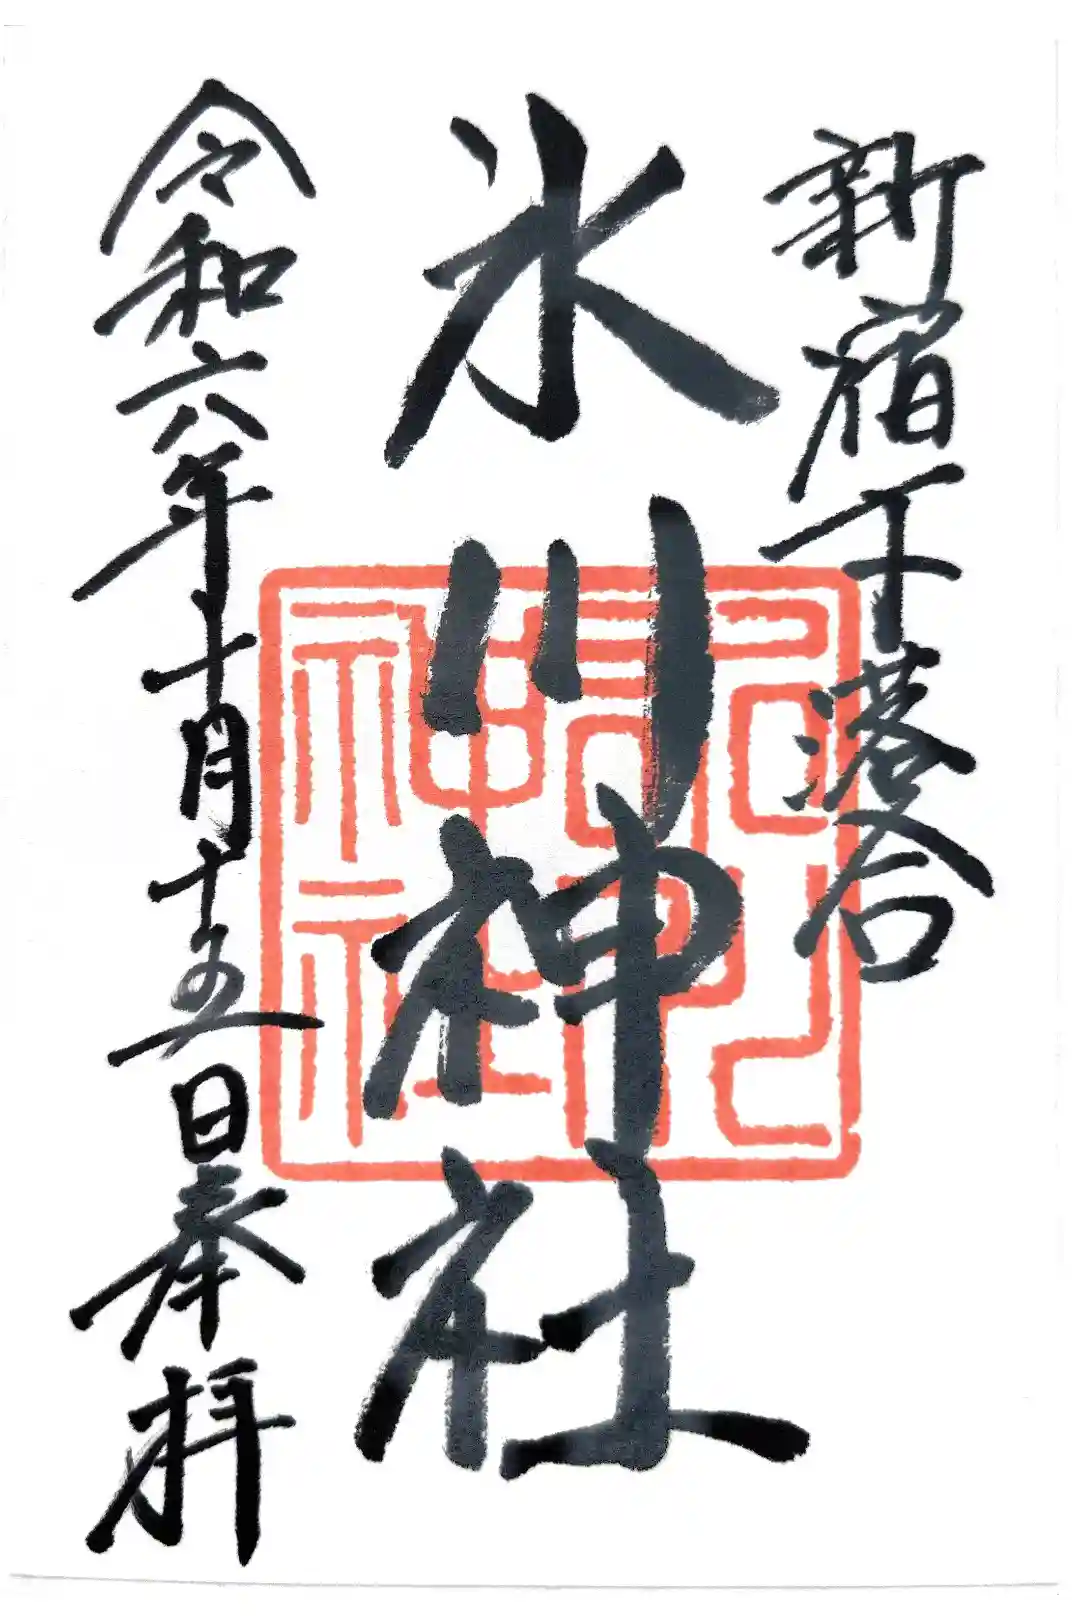 新宿下落合
氷川神社
令和六年十月十五日奉拝